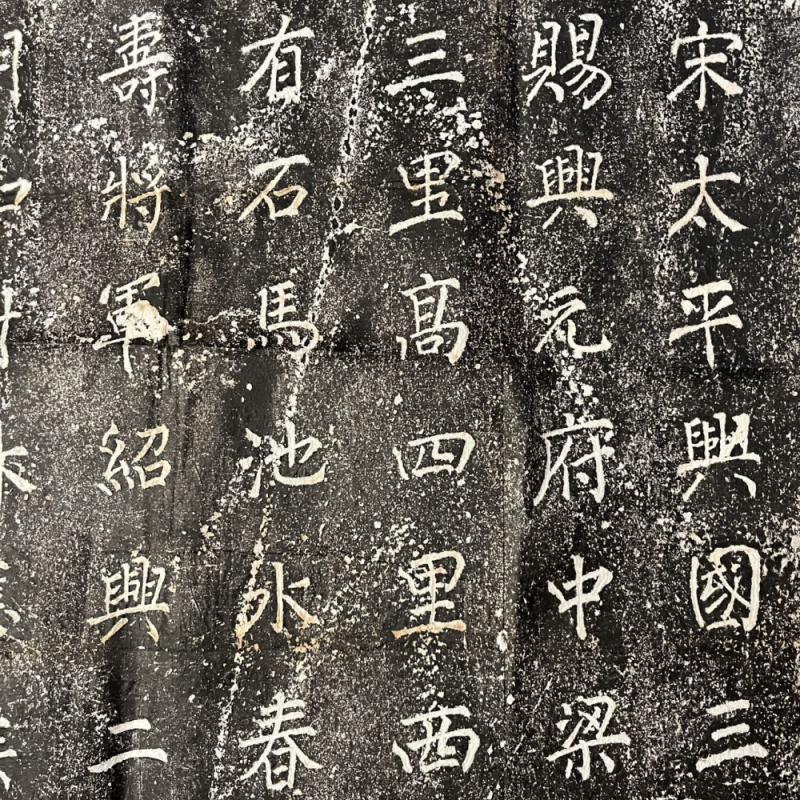 宋太平興國三
賜興元府中梁
三里高四里西
有石馬池水春
壽將軍紹興二